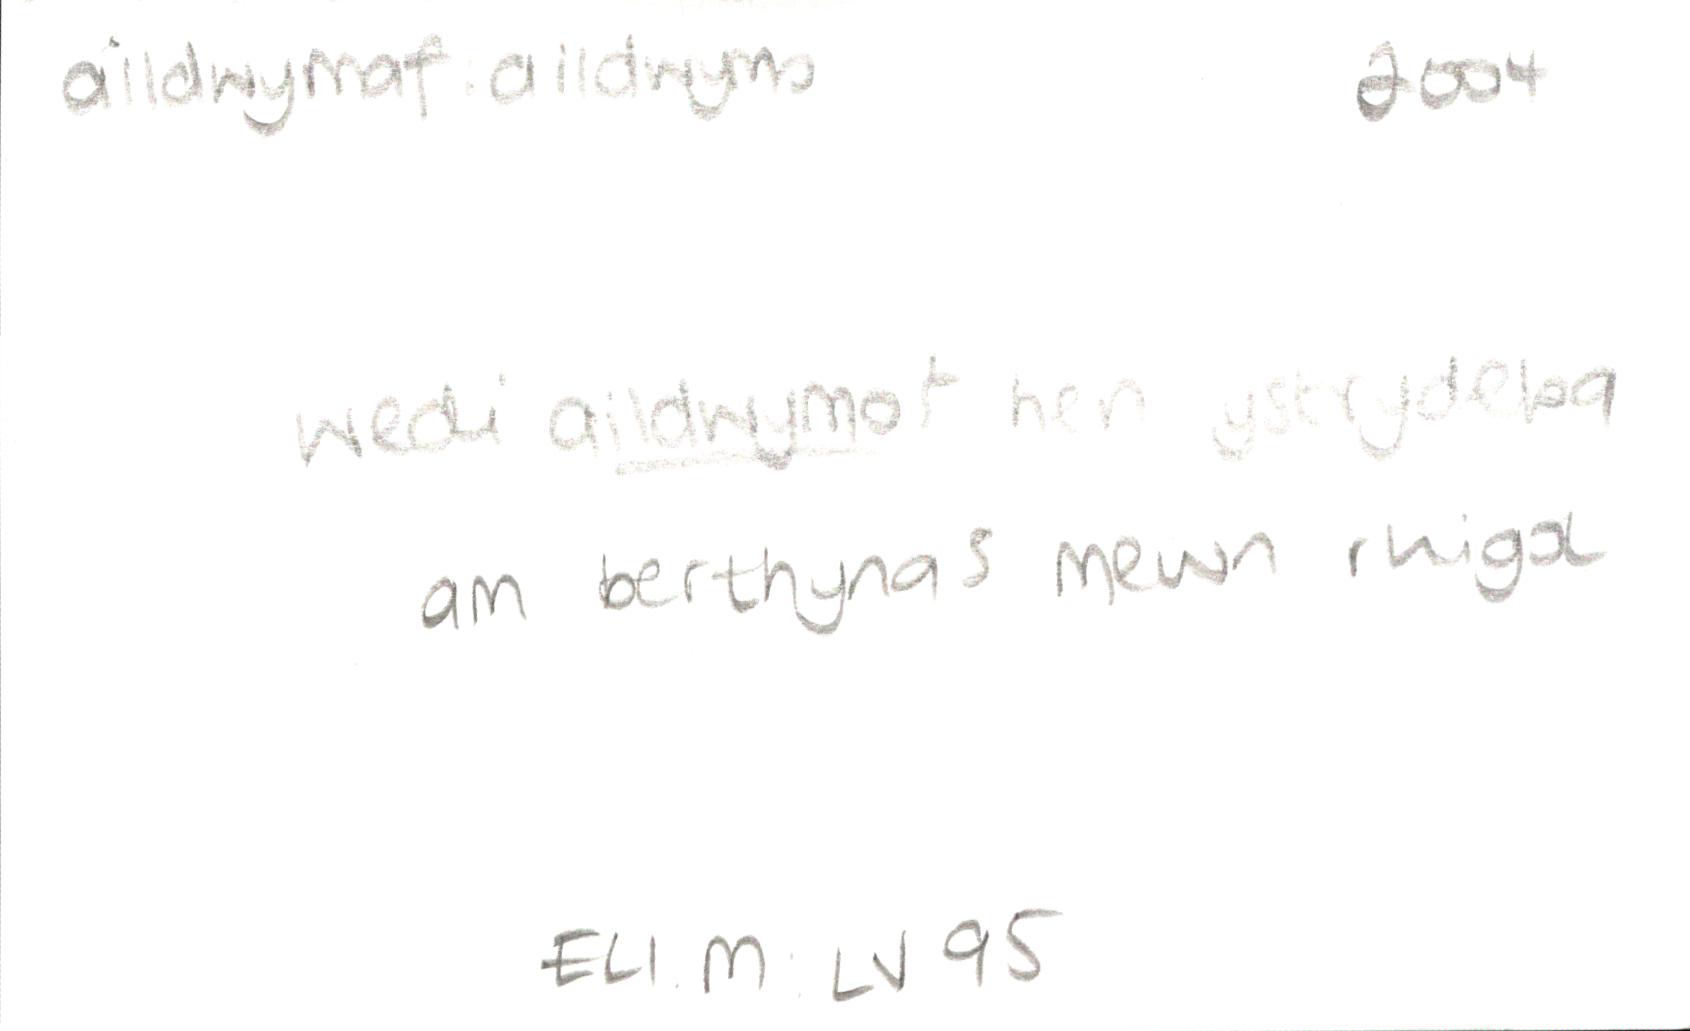 aildwymaf: aildwymo 2004
wedi aildwymo'r hen ystrydeba
am berthynas mewn rhigol
ELI.M: LV 95